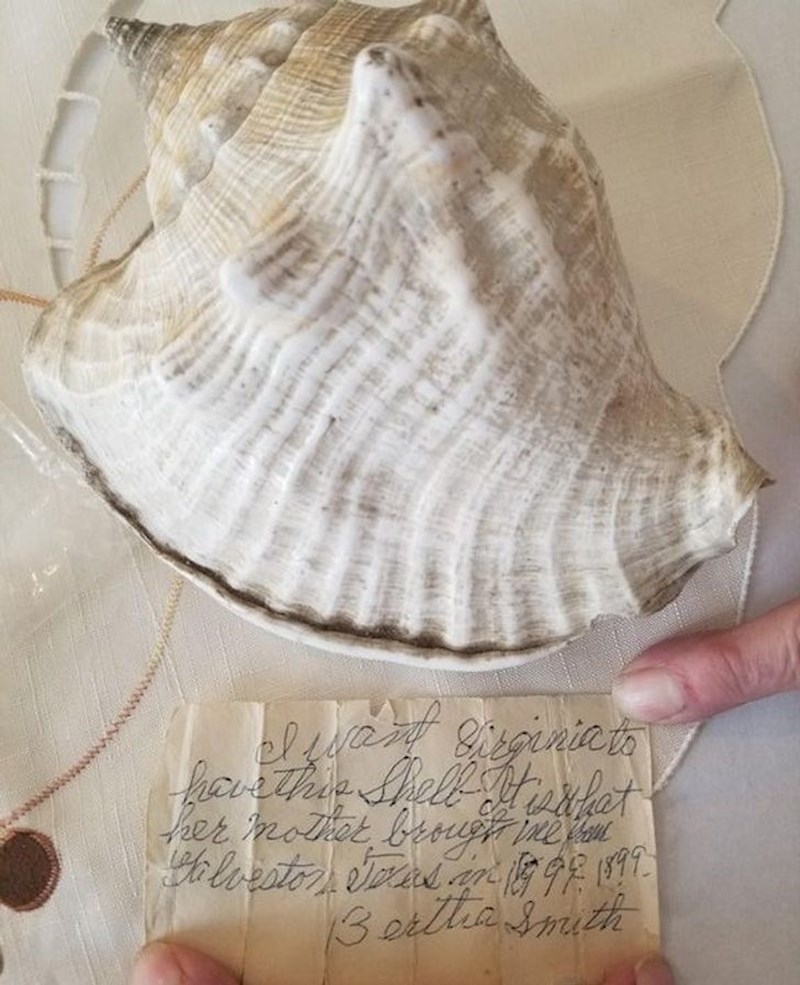 I want Virginia to
have this Shell - It is what
her mother brough me from
Galveston Texas in 1899. 1899-
Bertha Smith